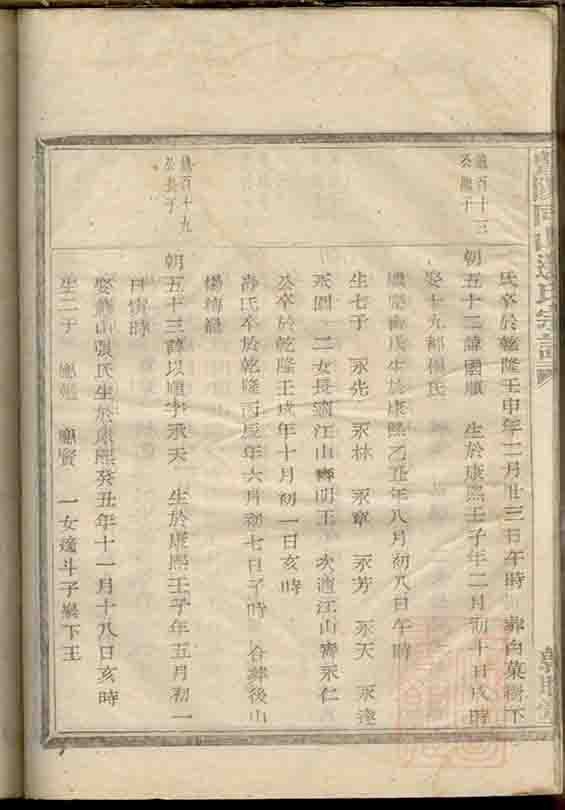 氏卒於乾隆壬申年二月廿三日午時 葬白菓樹下
百十三
公
子
朝五十二諱國順 生於康熙壬子年二月初十日戌時
娶十九都楊氏
氏生於康熙乙丑年八月初八日午時
生七子 永先 永林 永章 永芳 永天 永達
永 二女長適江山齊明王 次適江山齊永仁
公卒於乾隆壬戌年十月初一日亥時
氏卒於乾隆丙辰年六月初七日子時 合葬後山
楊
百十九
公長子
朝五十三諱以順字承天 生於康熙壬子年五月初一
日寅時
娶 山張氏生於康熙癸丑年十一月十八日亥時
生二子 應 應賢 一女適斗子 下王
氏宗譜